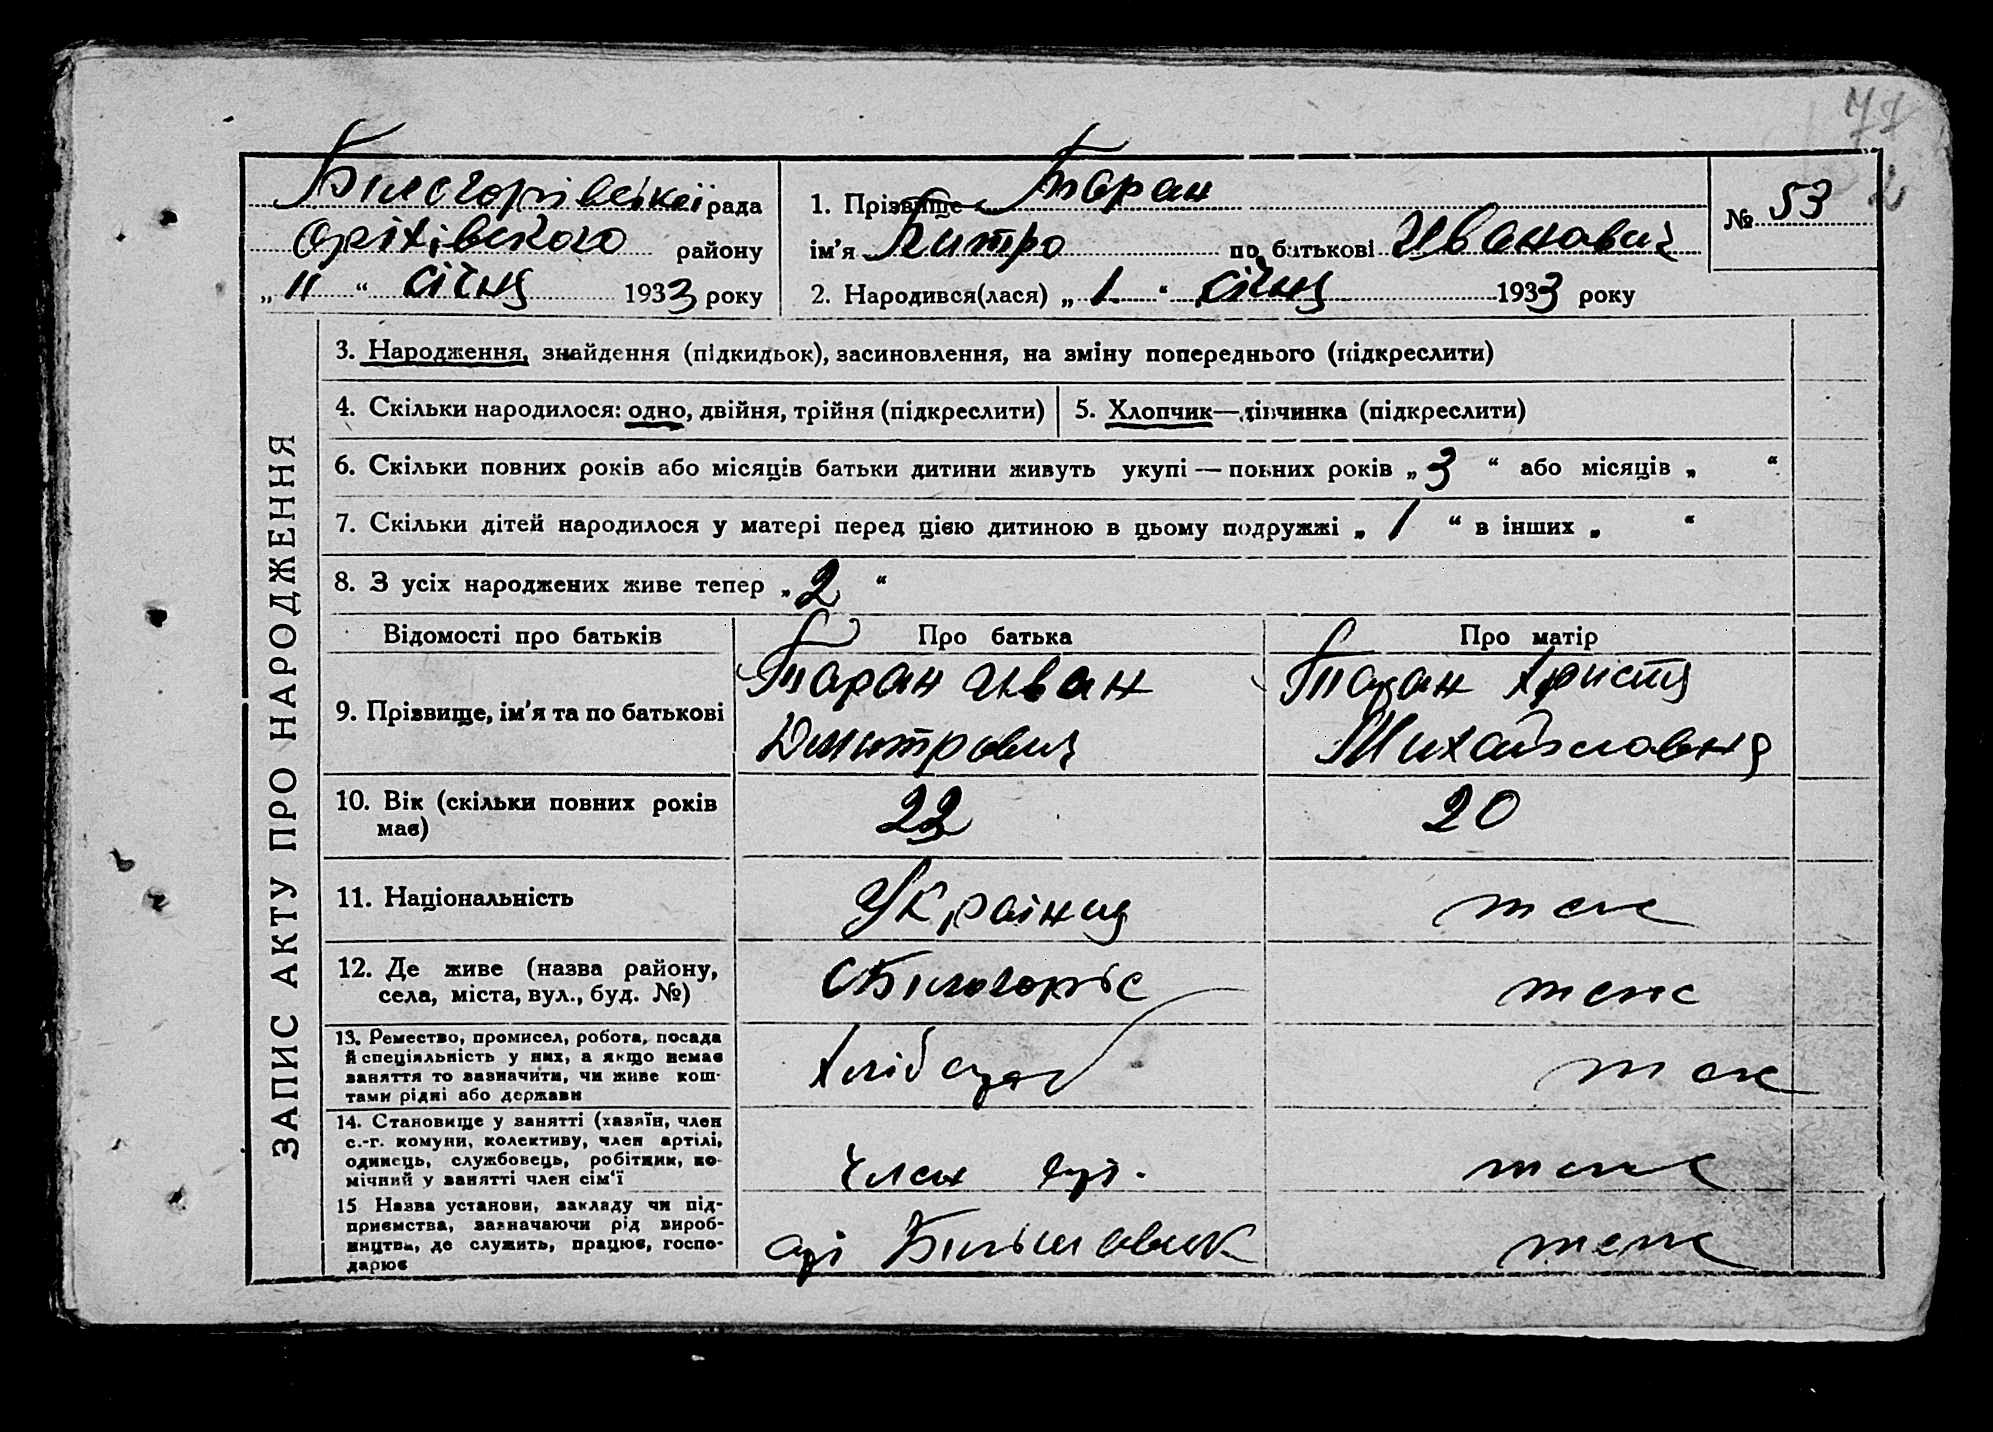 77
Білогорівської рада
Оріхівского району
„11“ січня 1933 року
1. Прізвище Таран
ім'я Дмитро по батькові Иванович
2. Народився(лася) „1“ січня 1933 року
№ 53
ЗАПИС АКТУ ПРО НАРОДЖЕННЯ
3. Народження, знайдення (підкидьок), засиновлення, на зміну попереднього (підкреслити)
4. Скільки народилося: одно, двійня, трійня (підкреслити)
5. Хлопчик—дівчинка (підкреслити)
6. Скільки повних років або місяців батьки дитини живуть укупі — повних років „3“ або місяців „ “
7. Скільки дітей народилося у матері перед цією дитиною в цьому подружжі „1“ в інших „ “
8. З усіх народжених живе тепер „2“
Відомості про батьків Про батька Про матір
9. Прізвище, ім'я та по батькові
Таран Иван
Дмитрович
Таран Христя
Михайловна
10. Вік (скільки повних років
має)
22
20
11. Національність
Українця
теж
12. Де живе (назва району,
села, міста, вул., буд. №)
с Білогорівс
теж
13. Ремество, промисел, робота, посада
й спеціяльність у них, а якщо немає
заняття то зазначити, чи живе кош-
тами рідні або держави
Хлібороб
теж
14. Становище у занятті (хазяїн, член
с.-г. комуни, колективу, член артілі,
одинець, службовець, робітник, по-
мічний у занятті член сім'ї
Член арт.
теж
15 Назва установи, закладу чи під-
приємства, зазначаючи рід вироб-
ництва, де служить, працює, госпо-
дарює
арт Більшовик
теж